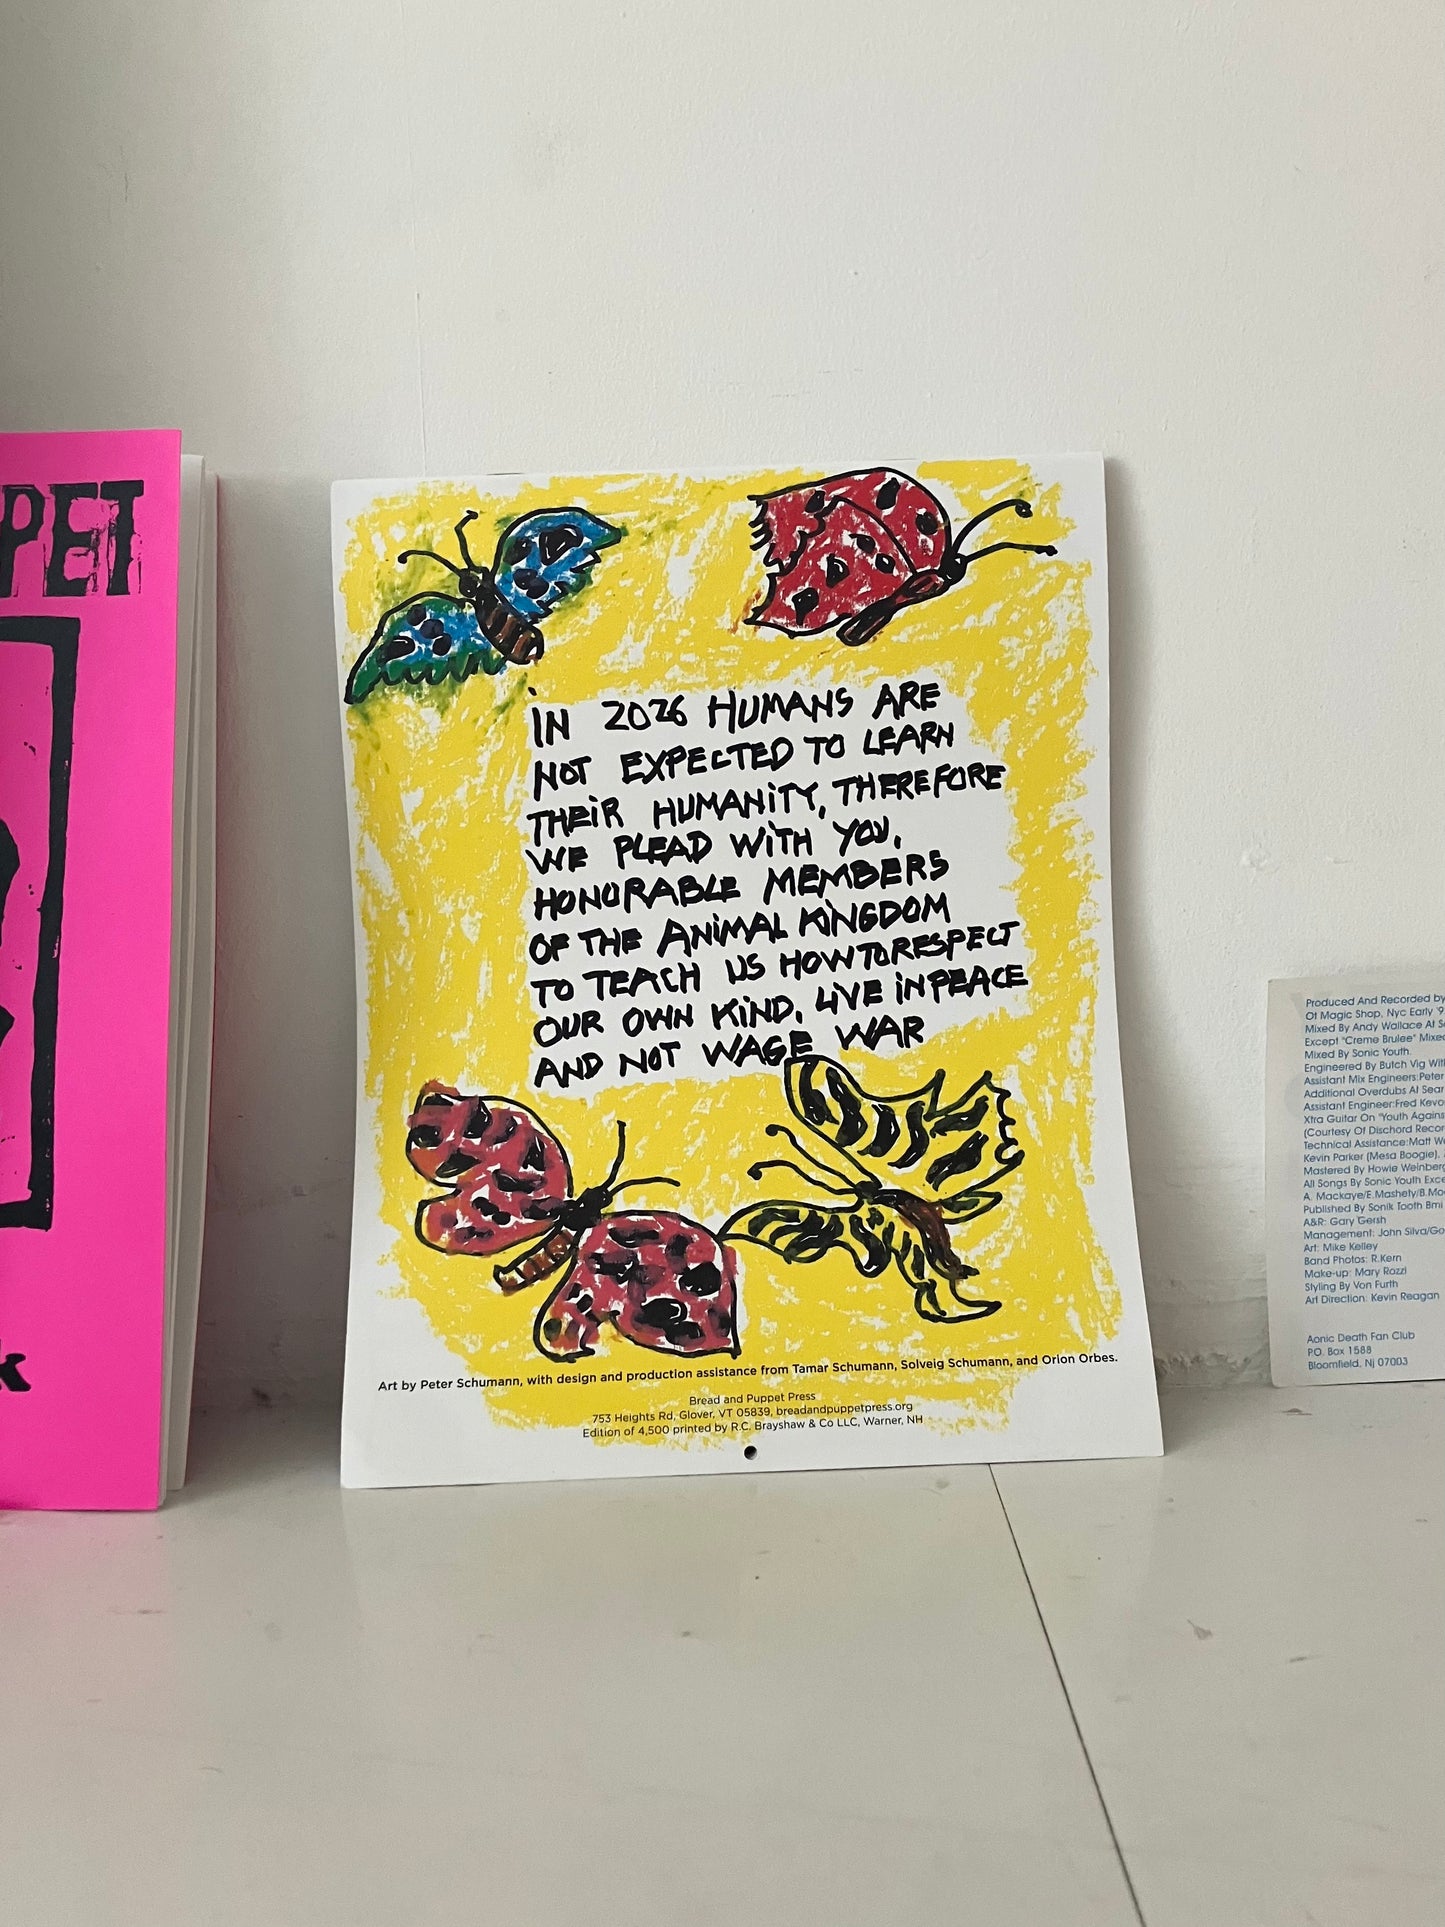 PET
k
iN 2026 HUMANS ARE
NOT EXPECTED TO LEARN
THEiR HUMANiTY, THEREFORE
WE PLEAD WiTH YOU,
HONORABLE MEMBERS
OF THE ANiMAL KiNGDOM
TO TEACH US HOW TO RESPECT
OUR OWN KiND, LiVE iN PEACE
AND NOT WAGE WAR
Art by Peter Schumann, with design and production assistance from Tamar Schumann, Solveig Schumann, and Orion Orbes.
Bread and Puppet Press
753 Heights Rd, Glover, VT 05839, breadandpuppetpress.org
Edition of 4,500 printed by R.C. Brayshaw & Co LLC, Warner, NH
Produced And Recorded by
At Magic Shop, Nyc Early '9
Mixed By Andy Wallace At
Except "Creme Brulee" Mixed
Mixed By Sonic Youth.
Engineered By Butch Vig
Assistant Mix Engineers:Peter
Additional Overdubs At Sear
Assistant Engineer:Fred
Xtra Guitar On "Youth
(Courtesy Of Dischord
Technical Assistance:Matt
Kevin Parker (Mesa Boogie),
Mastered By Howie
All Songs By Sonic Youth
A. Mackaye/E.Mashety/B.
Published By Sonik Tooth Bmi
A&R: Gary Gersh
Management: John Silva/
Art: Mike Kelley
Band Photos: R.Kern
Make-up: Mary Rozzi
Styling By Von Furth
Art Direction: Kevin Reagan
Aonic Death Fan Club
P.O. Box 1588
Bloomfield, Nj 07003